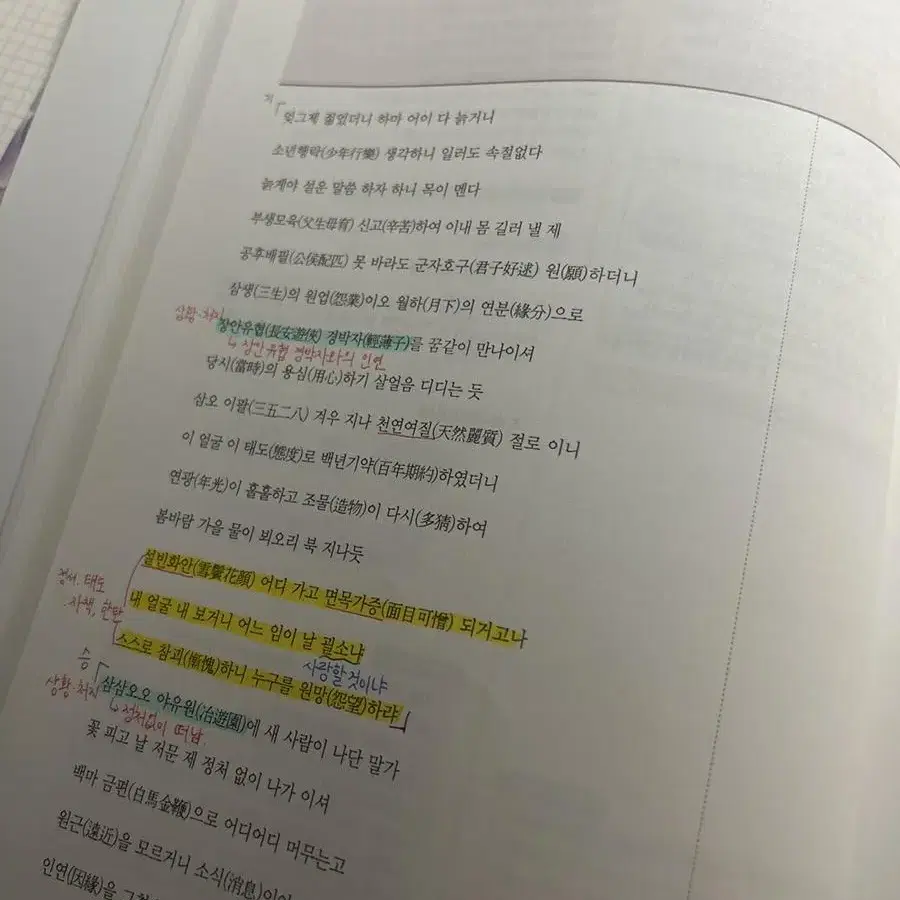 엊그제 젊었더니 하마 어이 다 늙거니
소년행락(少年行樂) 생각하니 일러도 속절없다
늙게야 설운 말씀 하자 하니 목이 멘다
부생모육(父生母育) 신고(辛苦)하여 이내 몸 길러 낼 제
공후배필(公侯配匹) 못 바라도 군자호구(君子好逑) 원(願)하더니
삼생(三生)의 원업(怨業)이오 월하(月下)의 연분(緣分)으로
상황·처지
장안유협(長安遊俠) 경박자(輕薄子)를 꿈같이 만나이셔
↳ 장안유협 경박자와의 인연
당시(當時)의 용심(用心)하기 살얼음 디디는 듯
삼오 이팔(三五二八) 겨우 지나 천연여질(天然麗質) 절로 이니
이 얼굴 이 태도(態度)로 백년기약(百年期約)하였더니
연광(年光)이 훌훌하고 조물(造物)이 다시(多猜)하여
봄바람 가을 물이 뵈오리 북 지나듯
설빈화안(雪鬢花顔) 어디 가고 면목가증(面目可憎) 되거고나
정서, 태도
자책, 한탄
내 얼굴 내 보거니 어느 임이 날 괼소냐
사랑할 것이냐
스스로 참괴(慚愧)하니 누구를 원망(怨望)하랴
승
상황·처지
삼삼오오 야유원(冶遊園)에 새 사람이 나단 말가
↳ 정처없이 떠남.
꽃 피고 날 저문 제 정처 없이 나가 이셔
백마 금편(白馬金鞭)으로 어디어디 머무는고
원근(遠近)을 모르거니 소식(消息)이야
인연(因緣)을